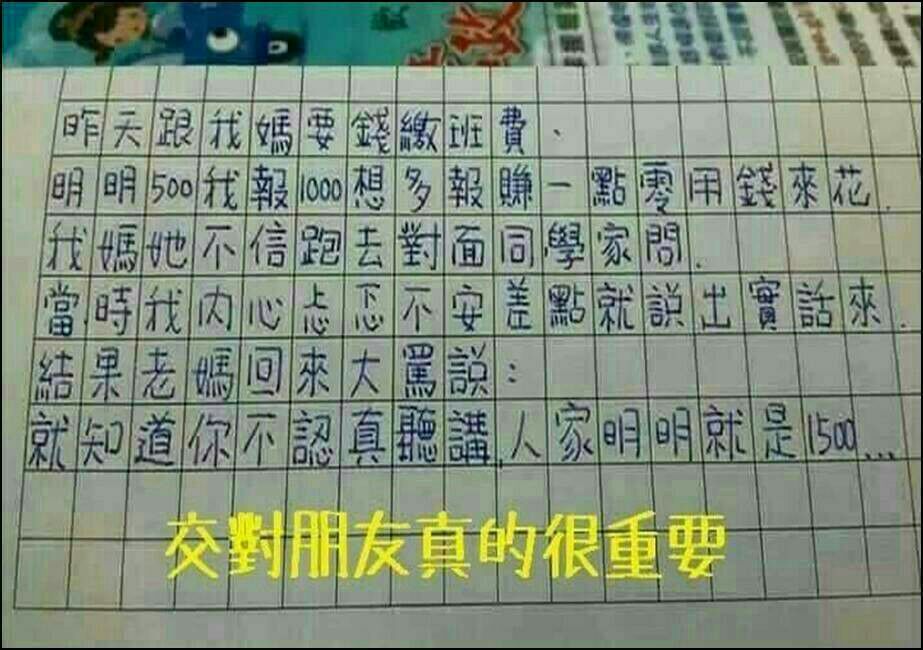 昨天跟我媽要錢繳班費、
明明500我報1000想多報賺一點零用錢來花.
我媽她不信跑去對面同學家問.
當時我内心忐忑不安差點就說出實話來.
結果老媽回來大罵說:
就知道你不認真聽講,人家明明就是1500...
交對朋友真的很重要